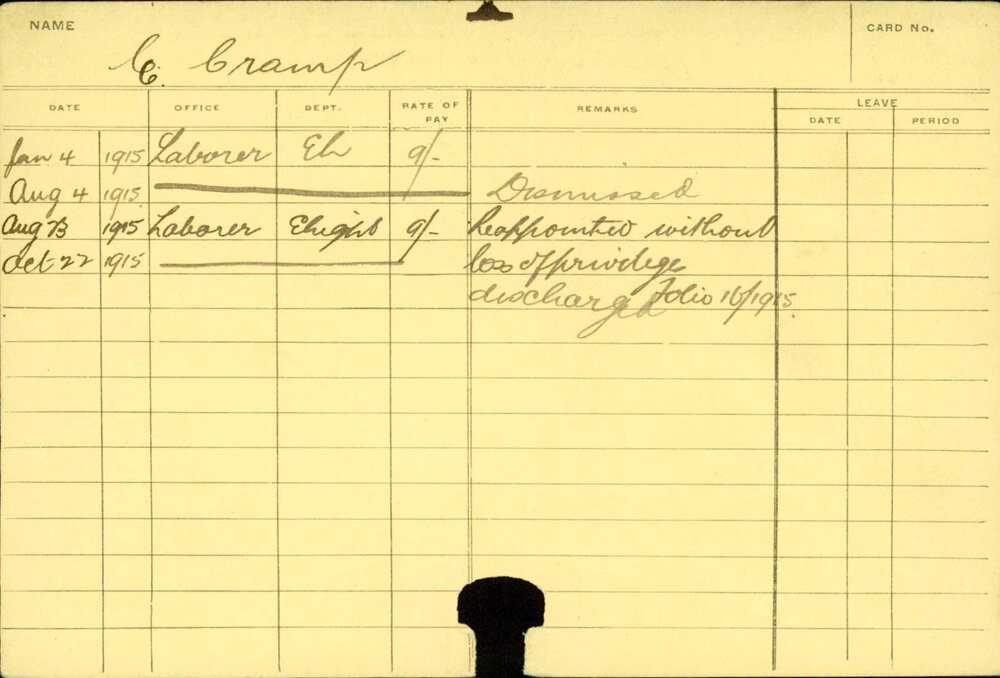 NAME
CARD No.
C. Cramp
DATE OFFICE DEPT. RATE OF PAY REMARKS LEAVE
DATE PERIOD
Jan 4 1915 Laborer El 9/-
Aug 4 1915 Dismissed
Aug 1915 Laborer 9/- Reappointed without
Oct 22 1915 loss of privilege
discharged Folio 1915